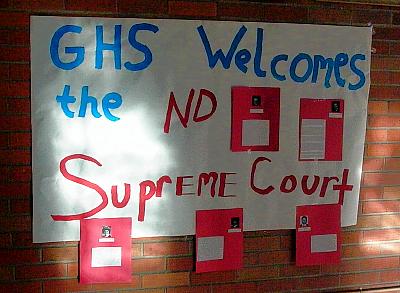 GHS Welcomes
the ND
Supreme Court